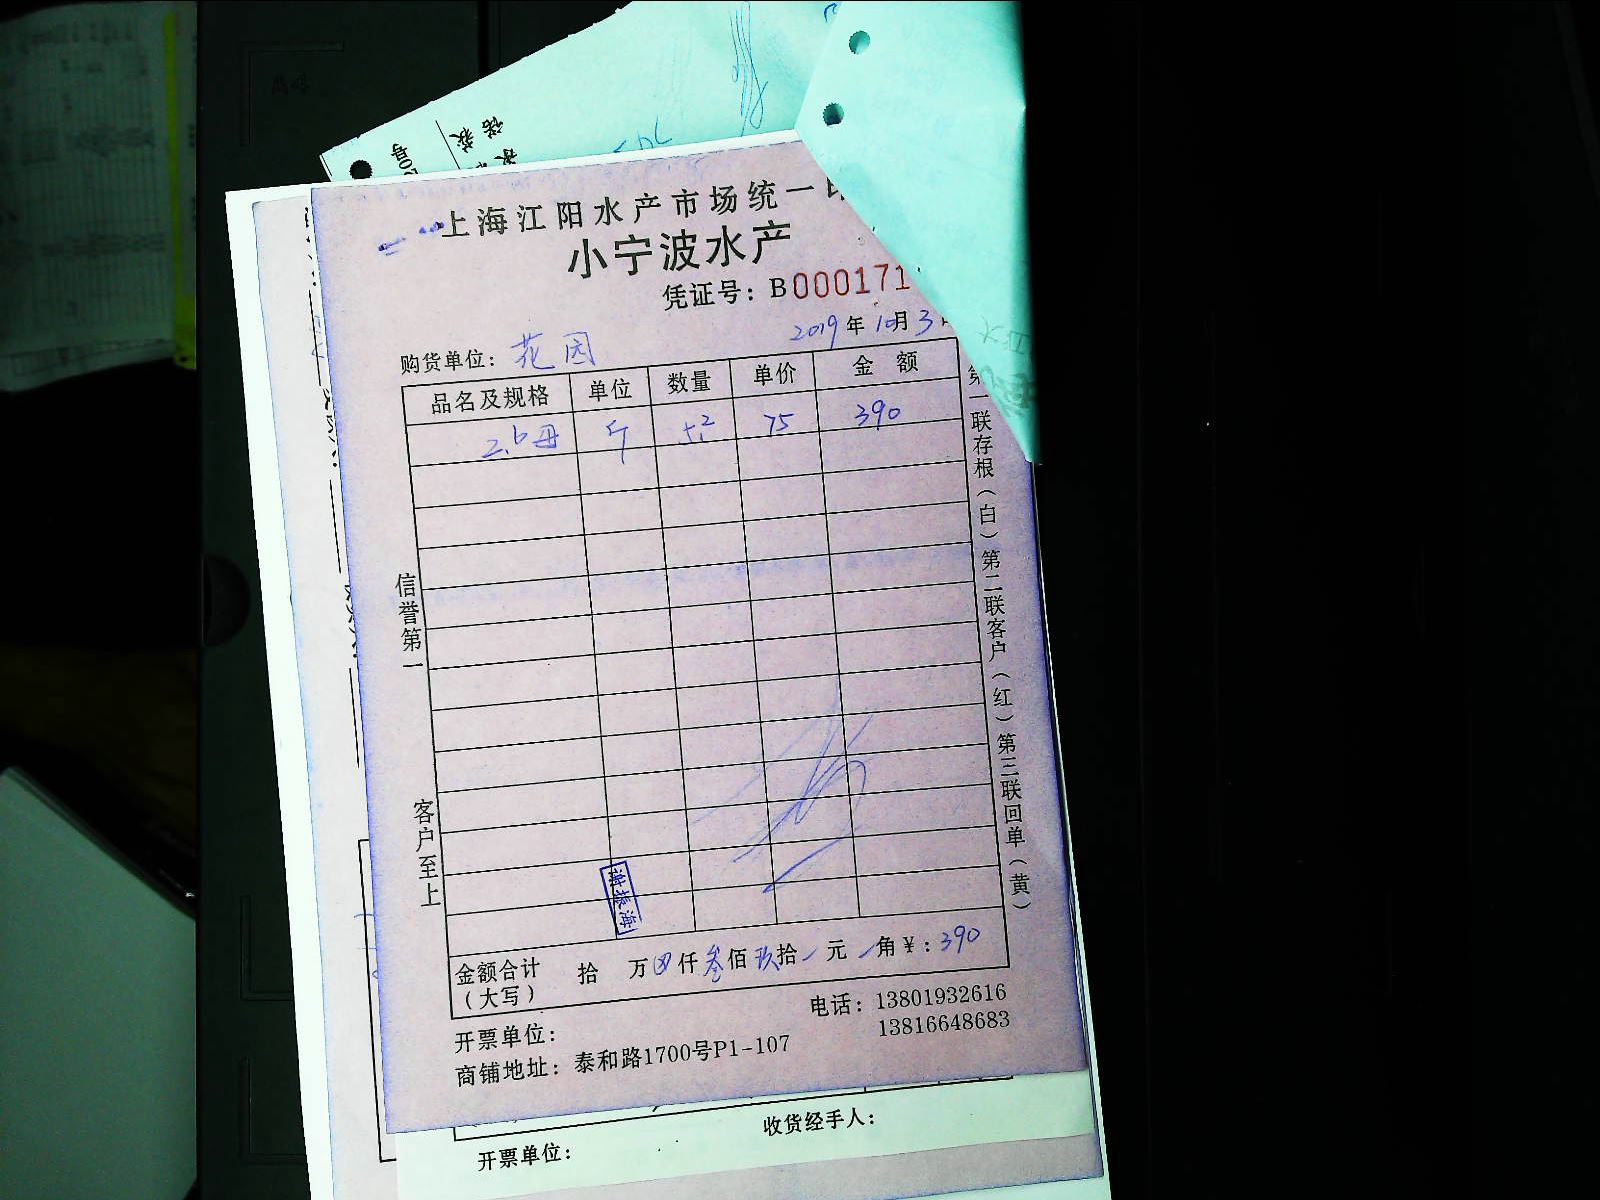 上海江阳水产市场统一
小宁波水产
凭证号：B000171
2019年10月3
购货单位：花园
品名及规格 单位 数量 单价 金 额
2.6母 斤 5.2 75 390
第一联存根（白）第二联客户（红）第三联回单（黄）
信誉第一
客户至上
谢振海
金额合计 拾 万 仟叁佰玖拾 元 角￥：390
（大写）
电话：13801932616
13816648683
开票单位：
商铺地址：泰和路1700号P1-107
收货经手人：
开票单位：